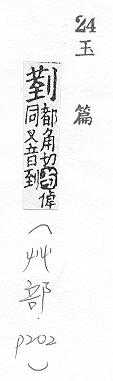 24
玉篇
菿
都角切与倬
同又音到
(艸部.p202)